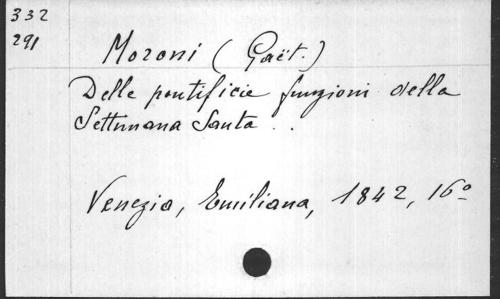 332
291
Moroni (Gaët.)
Delle pontificie funzioni della
Settimana Santa . .
Venezia, Emiliana, 1842, 16º